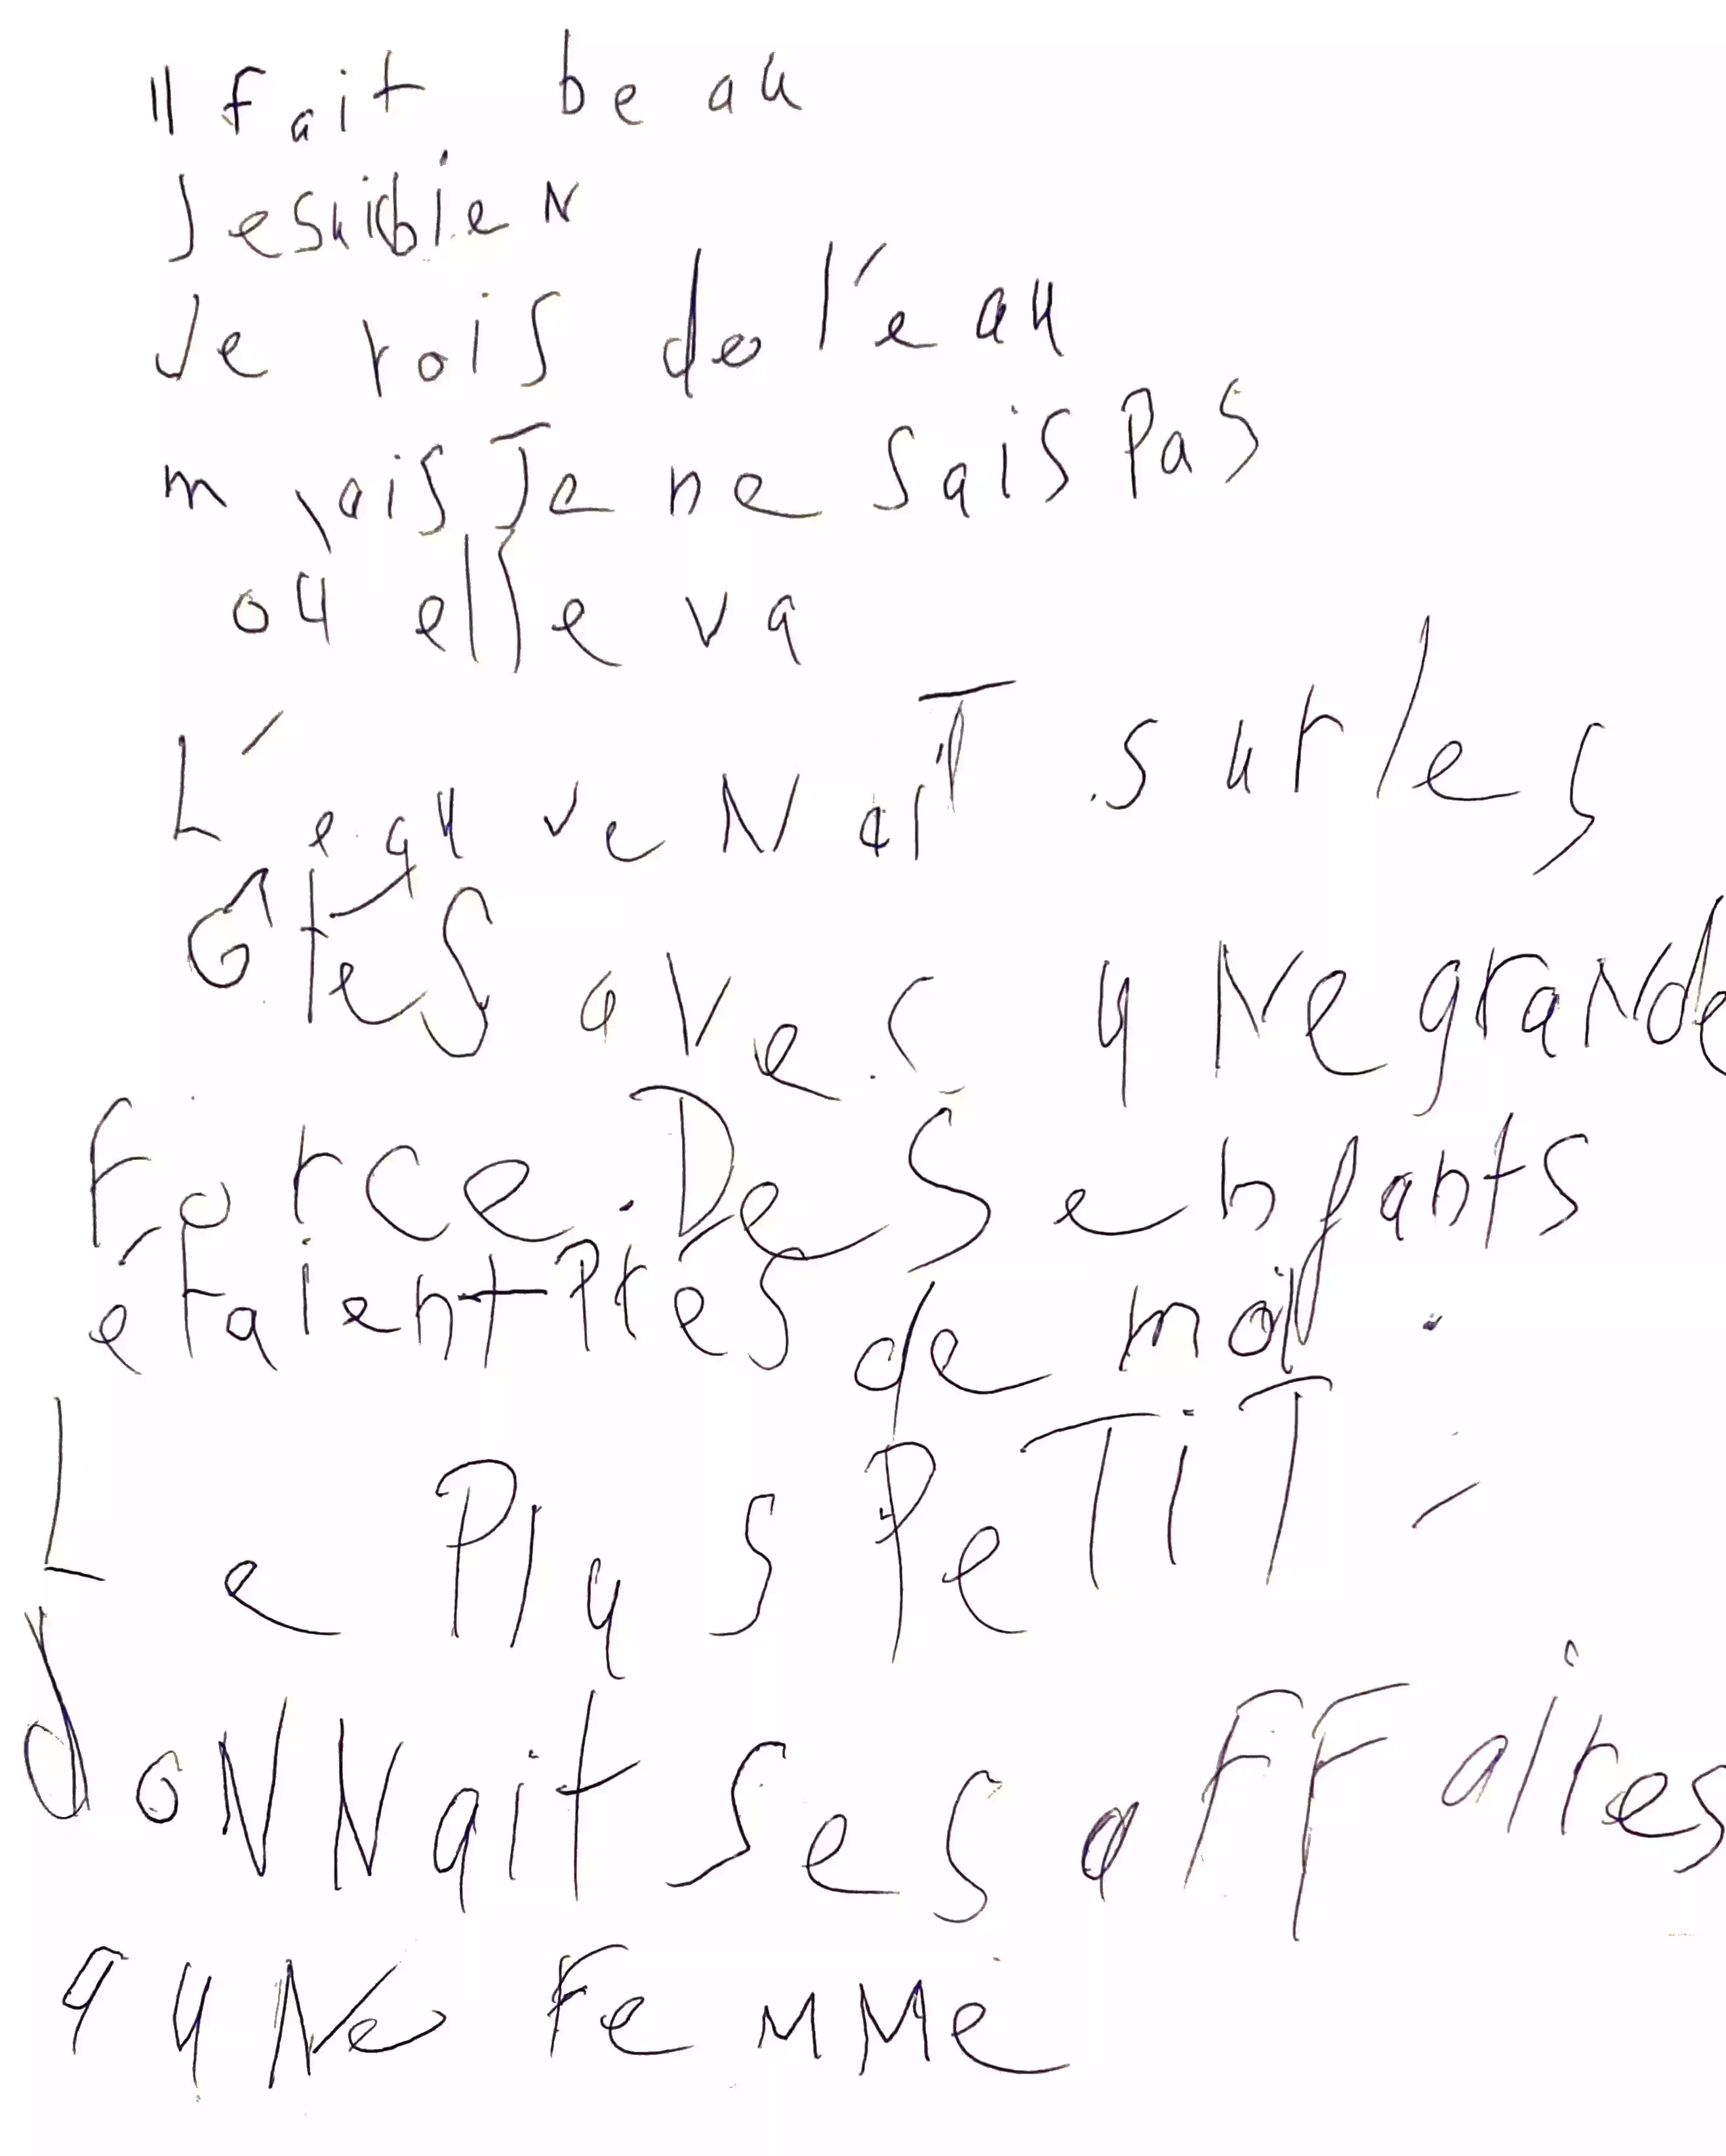 Il fait beau
Je suibien
Je vois de l'eau
mais Je ne sais Pas
où elle va
L'eau venaiT sur les
côtes avec uNe graNde
Force. Des enfants
étaient Près de moi.
Le Plus PeTiT
doNNait ses aFFaires
a uNe FeMMe